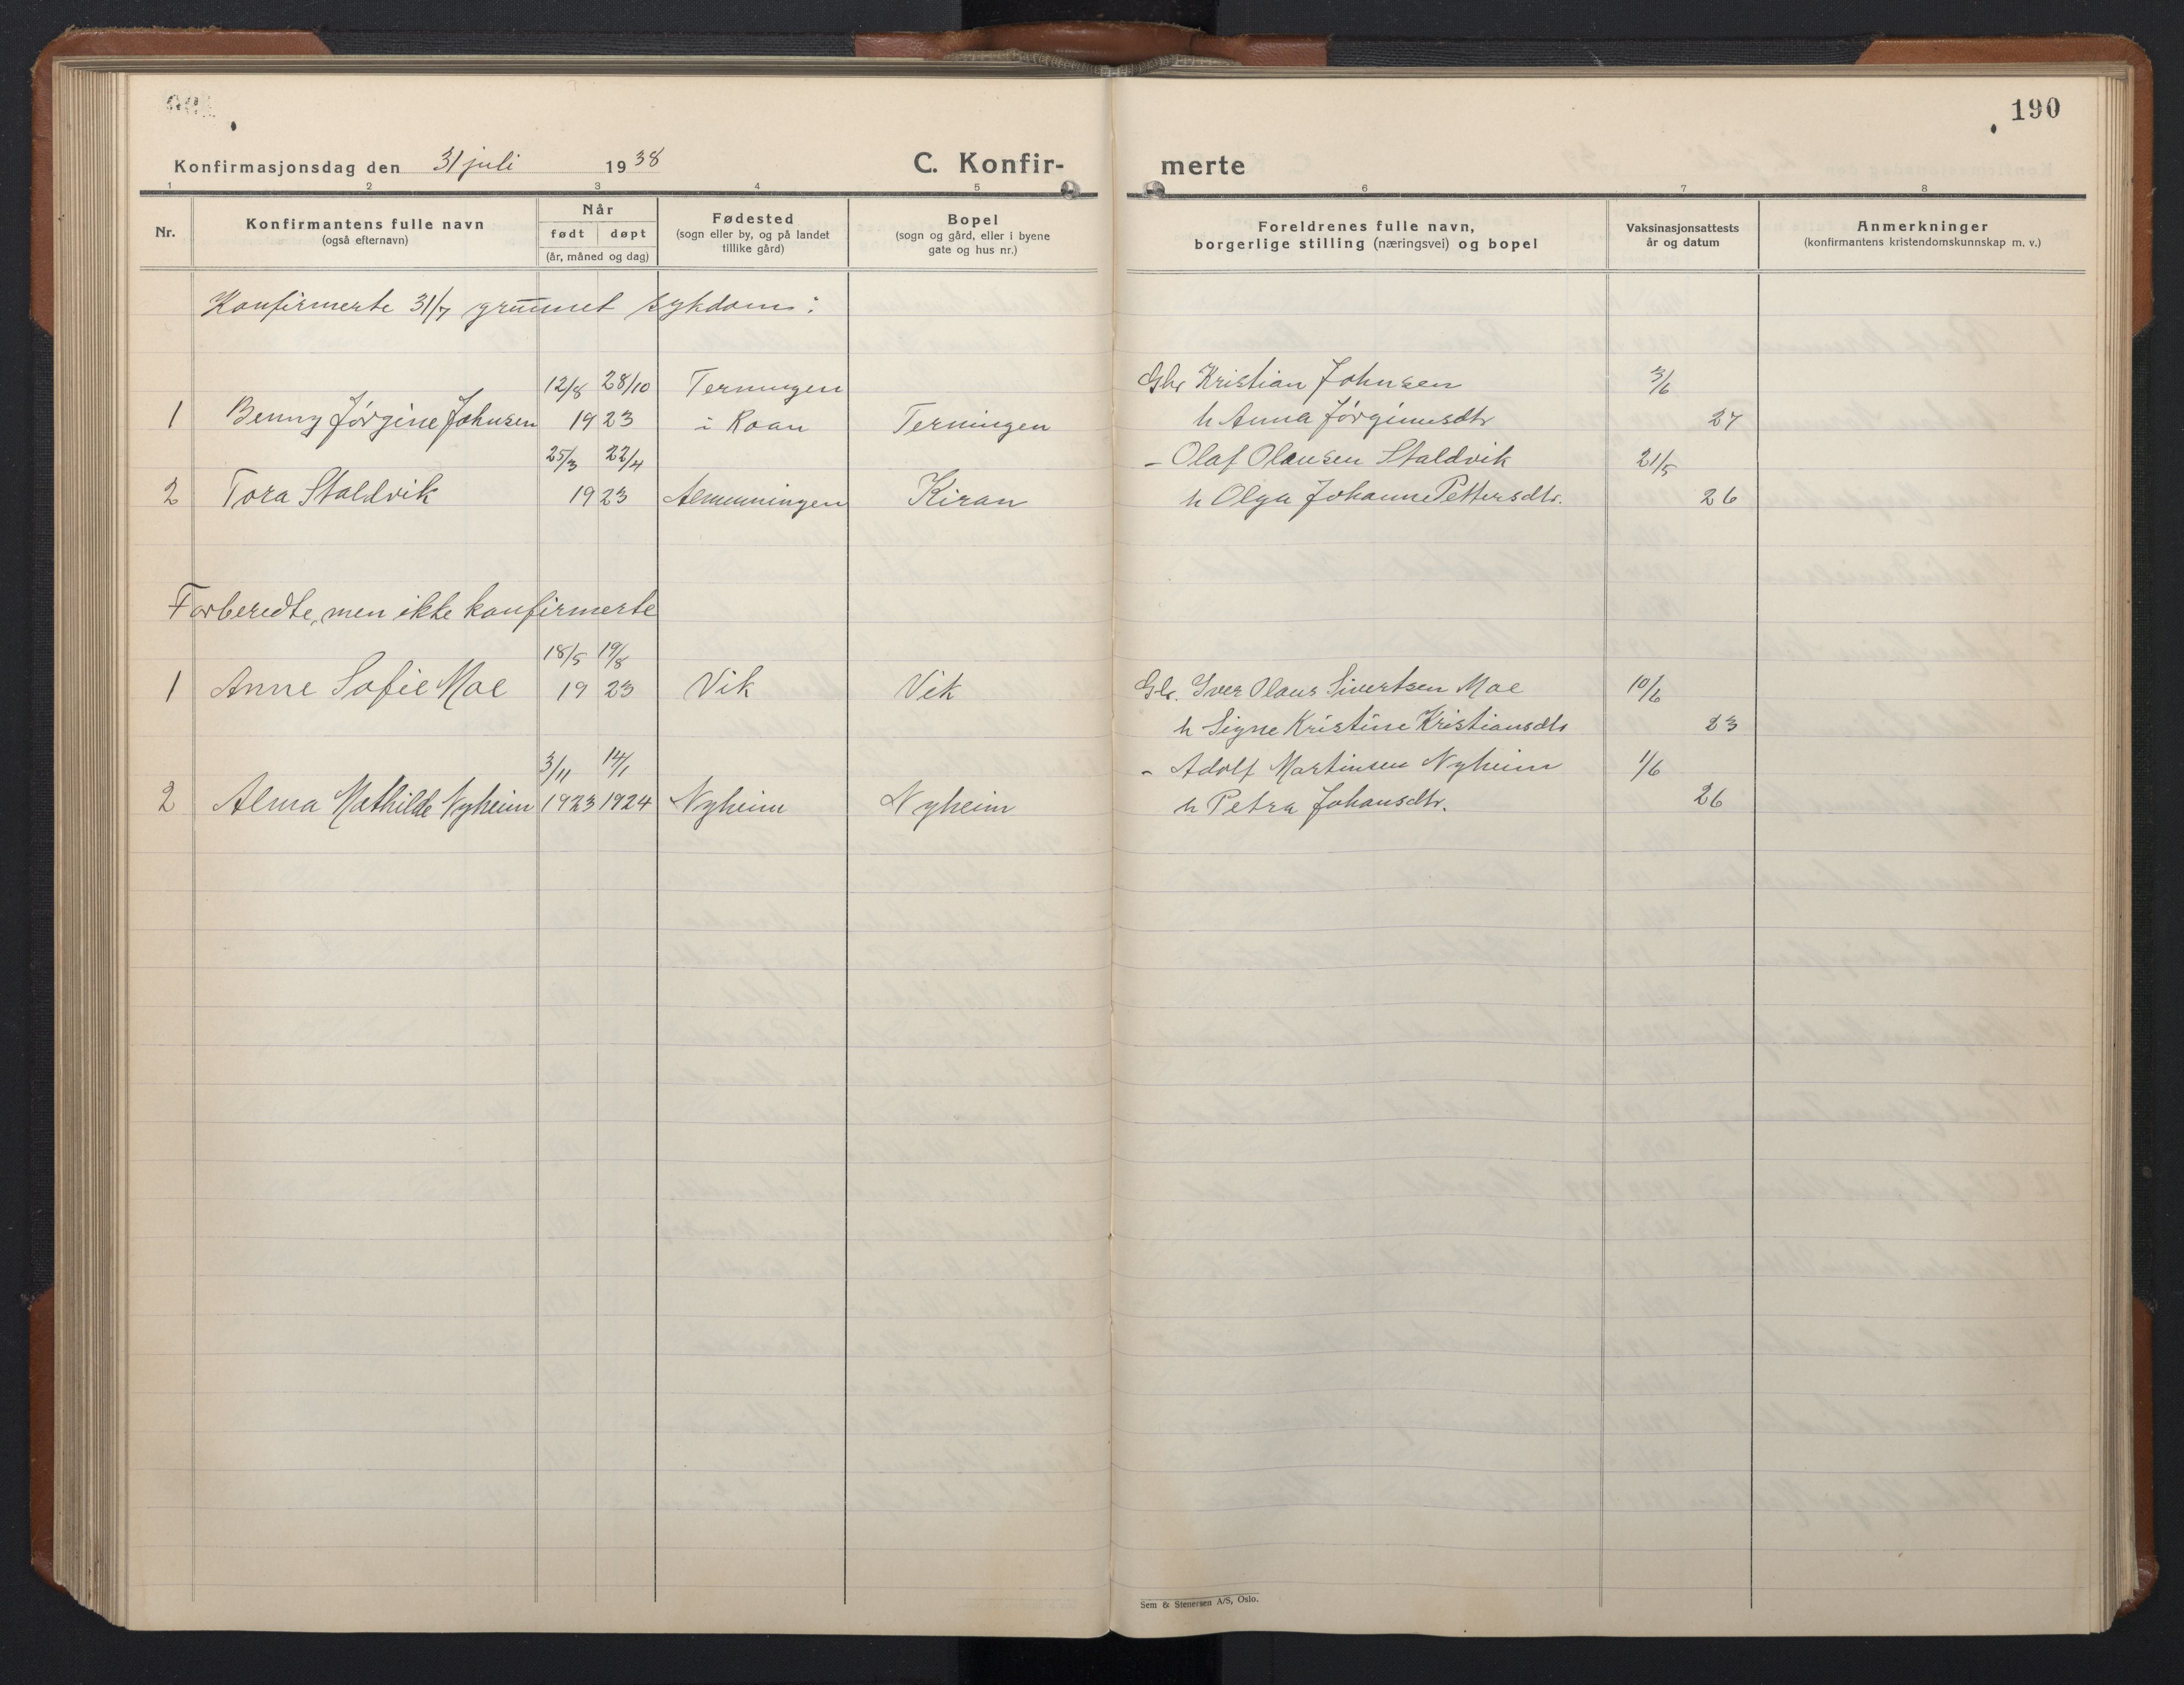 190
Konfirmasjonsdag den 31 juli 1938
C. Konfir-
merte
1 2 3 4 5 6 7 8
Nr.
Konfirmantens fulle navn
(også efternavn)
Når
født døpt
(år, måned og dag)
Fødested
(sogn eller by, og på landet
tillike gård)
Bopel
(sogn og gård, eller i byene
gate og hus nr.)
Foreldrenes fulle navn,
borgerlige stilling (næringsvei) og bopel
Vaksinasjonsattests
år og datum
Anmerkninger
(konfirmantens kristendomskunnskap m. v.)
Konfirmerte 31/7 grunnet sykdom:
12/8 28/10 Terningen Gbr Kristian Johnsen 3/6
1 Benny Jørgine Johnsen 1923 i Roan Terningen h Anna Jørginusdtr 27
25/3 22/4 - Olaf Olausen Staldvik 21/5
2 Tora Staldvik 1923 Almenningen Kiran h Olga Johanne Pettersdtr. 26
Forberedte, men ikke konfirmerte
18/5 19/8
1 Anne Sofie Moe 1923 Vik Vik Gbr. Iver Olaus Sivertsen Moe 10/6
h Signe Kristine Kristiansdtr 23
3/11 14/1 - Adolf Martinsen Nyheim 1/6
2 Alma Mathilde Nyheim 1923 1924 Nyheim Nyheim h Petra Johansdtr. 26
Sem & Stenersen A/S, Oslo.